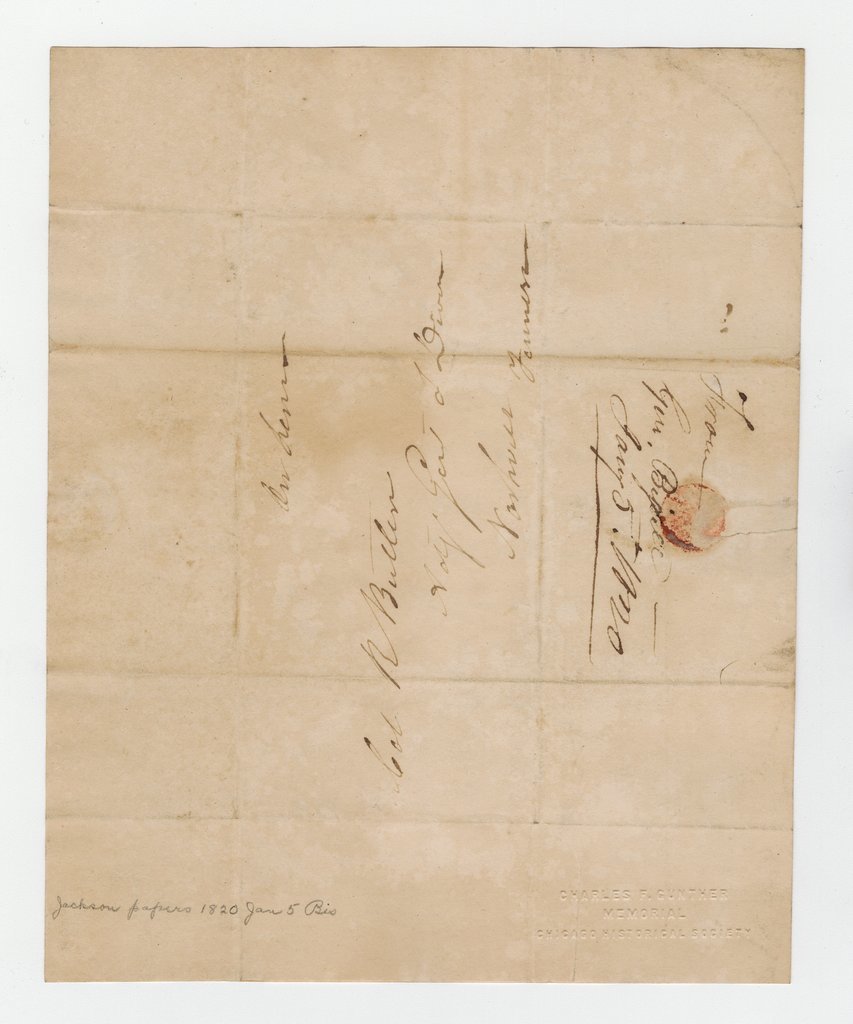 Col R Butler
Adjt Genl S Divn
Nashville Tennessee
From
Gen.
Jany 5. 1820
Jackson papers 1820 Jan 5 Bis
CHARLES F. GUNTHER
MEMORIAL
CHICAGO HISTORICAL SOCIETY